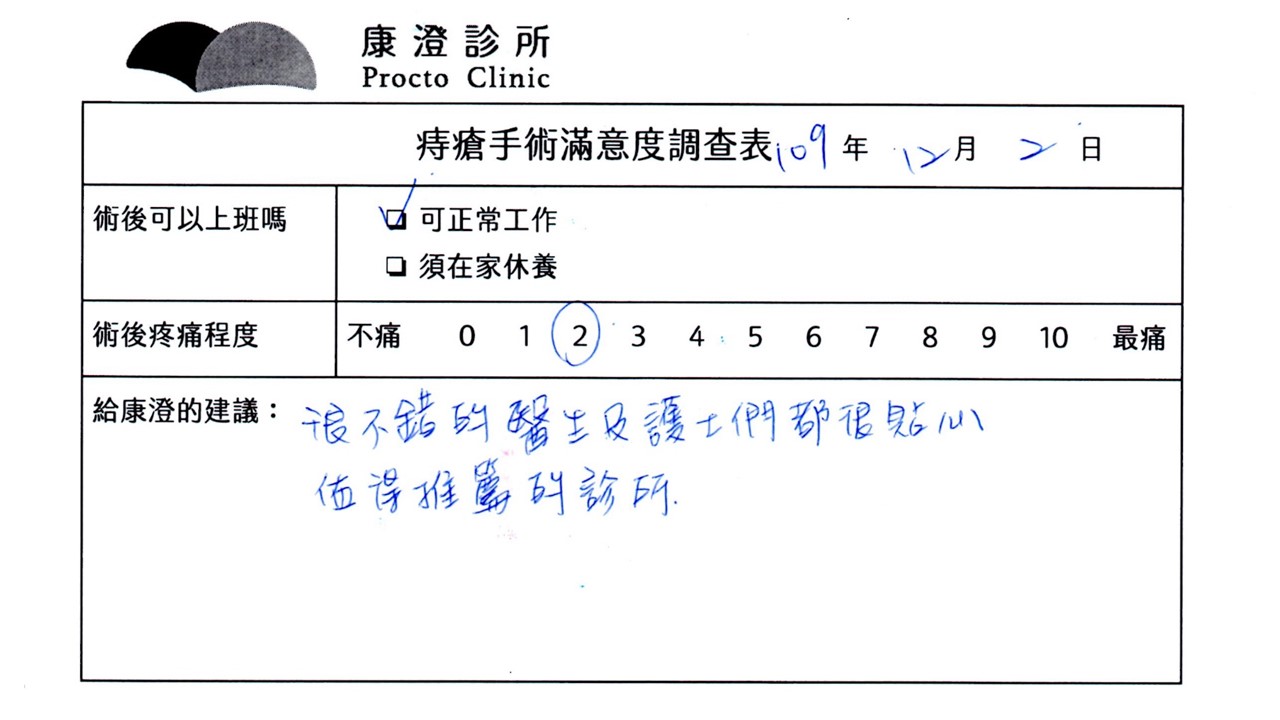 康澄診所
Procto Clinic
痔瘡手術滿意度調查表 109 年 12 月 2 日
術後可以上班嗎
☑ 可正常工作
❑ 須在家休養
術後疼痛程度 不痛 0 1 2 3 4 5 6 7 8 9 10 最痛
給康澄的建議：很不錯的醫生及護士們都很貼心
值得推薦的診所.